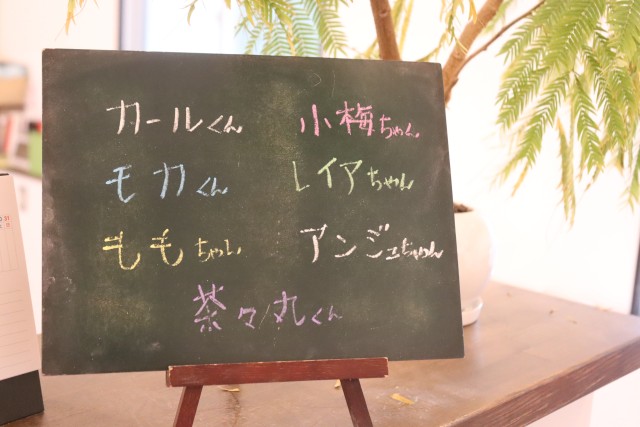 カールくん 小梅ちゃん
モカくん レイアちゃん
ももちゃん アンジュちゃん
茶々丸くん
31